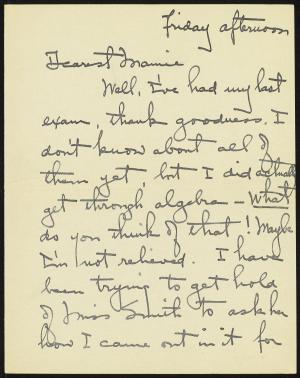 Friday afternoon
Dearest Mamie
Well, I've had my last
exam, thank goodness. I
don't know about all of
them yet, but I did actually
get through algebra – What
do you think of that! Maybe
I'm not relieved. I have
been trying to get hold
of Miss Smith to ask her
how I came out in it for